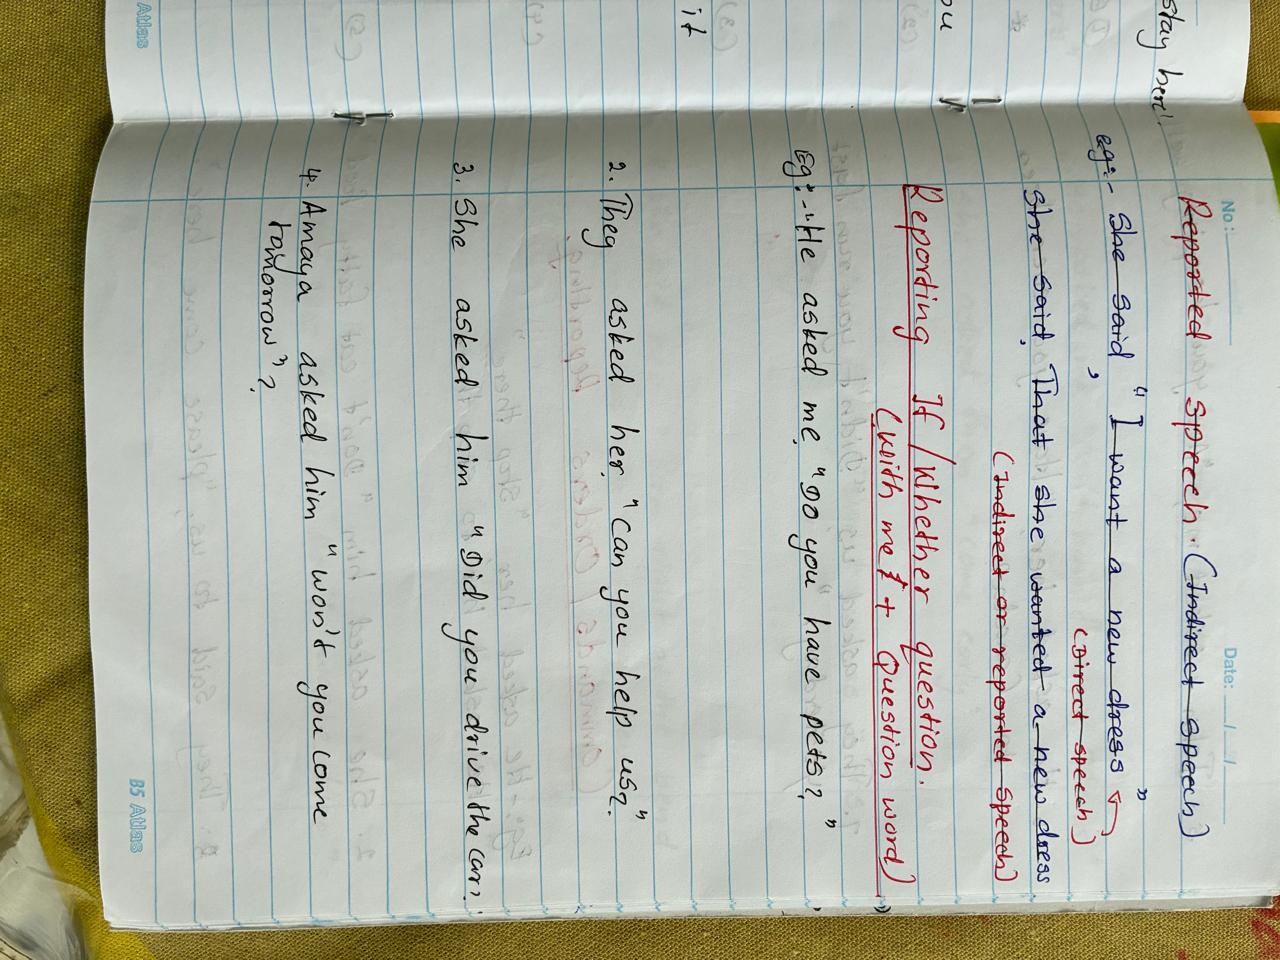 No:
Date:
Reported speech. (Indirect speech)
eg:- She said, "I want a new dress"
(Direct speech)
She said, That she wanted a new dress
(Indirect or reported speech)
Reporting If/Whether question.
(with me + Question word)
Eg:- "He asked me, "Do you have pets?"
2. They asked her, "can you help us?"
3. She asked him "Did you drive the car?"
4. Amaya asked him "won't you come
tomorrow"?
B5 Atlas
stay here!
ou
it
Atlas